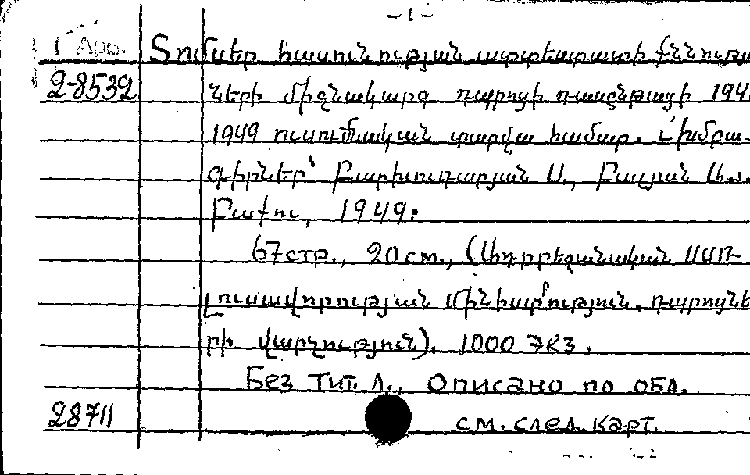 - 1 -
Տոմսեր հասունության ատեստատի քննություն
2-8532 ների միջնակարգ դպրոցի դասընթացի 194
1949 ուսումնական տարվա համար. Խմբա-
գիրներ՝ Բարխուդարյան Ս., Բալյան Ա.
Բաքու, 1949:
67 стр., 20 см., (Ադրբեջանական ՍՍՌ
Լուսավորության Մինիստրություն. դպրոցնե
րի վարչություն). 1000 экз.
Без тит. л., Описано по обл.
28711 см. след. карт.